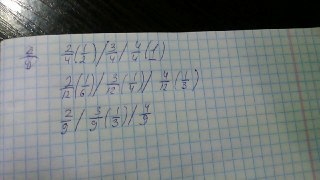 2/9 2/4(1/2)/3/4/4/4(1)
2/12(1/6)/3/12(1/4)/4/12(1/3)
2/9/3/9(1/3)/4/9